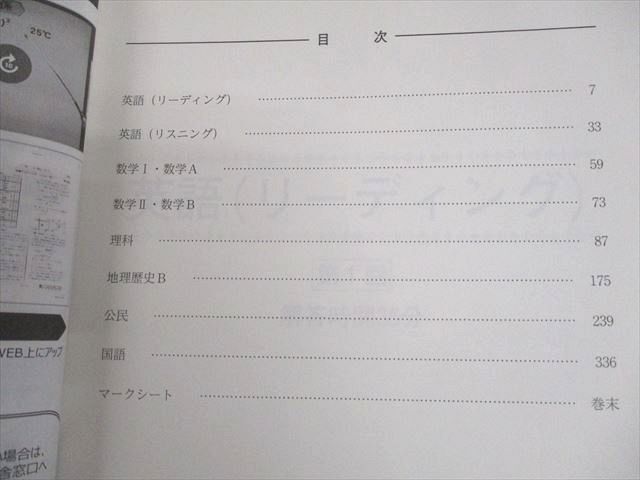 目次
英語（リーディング） 7
英語（リスニング） 33
数学Ⅰ・数学A 59
数学Ⅱ・数学B 73
理科 87
地理歴史B 175
公民 239
国語 336
マークシート 巻末
25℃
WEB上にアップ
場合は、
舎窓口へ
英語（リーディング）